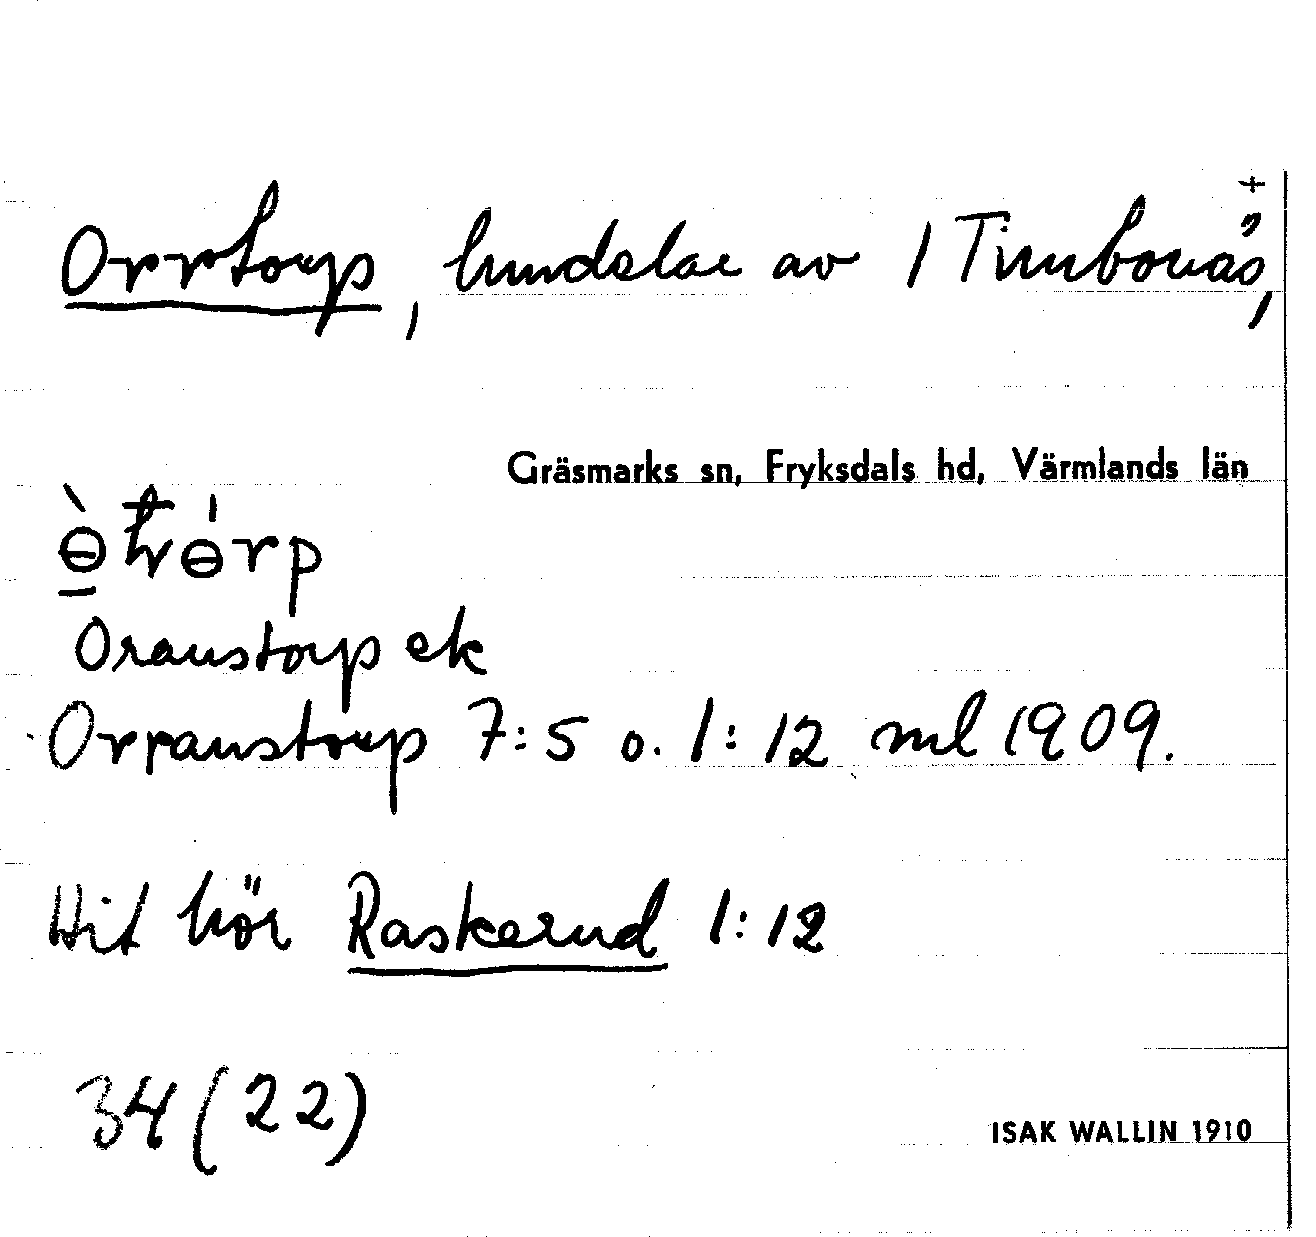 Orrtorp, hundelar av 1 Timbonäs,
Gräsmarks sn, Fryksdals hd, Värmlands län
Oranstorp ek
Orranstorp 7:5 o. 1:12 ml 1909.
Hit hör Raskerud 1:12
34 (22)
ISAK WALLIN 1910